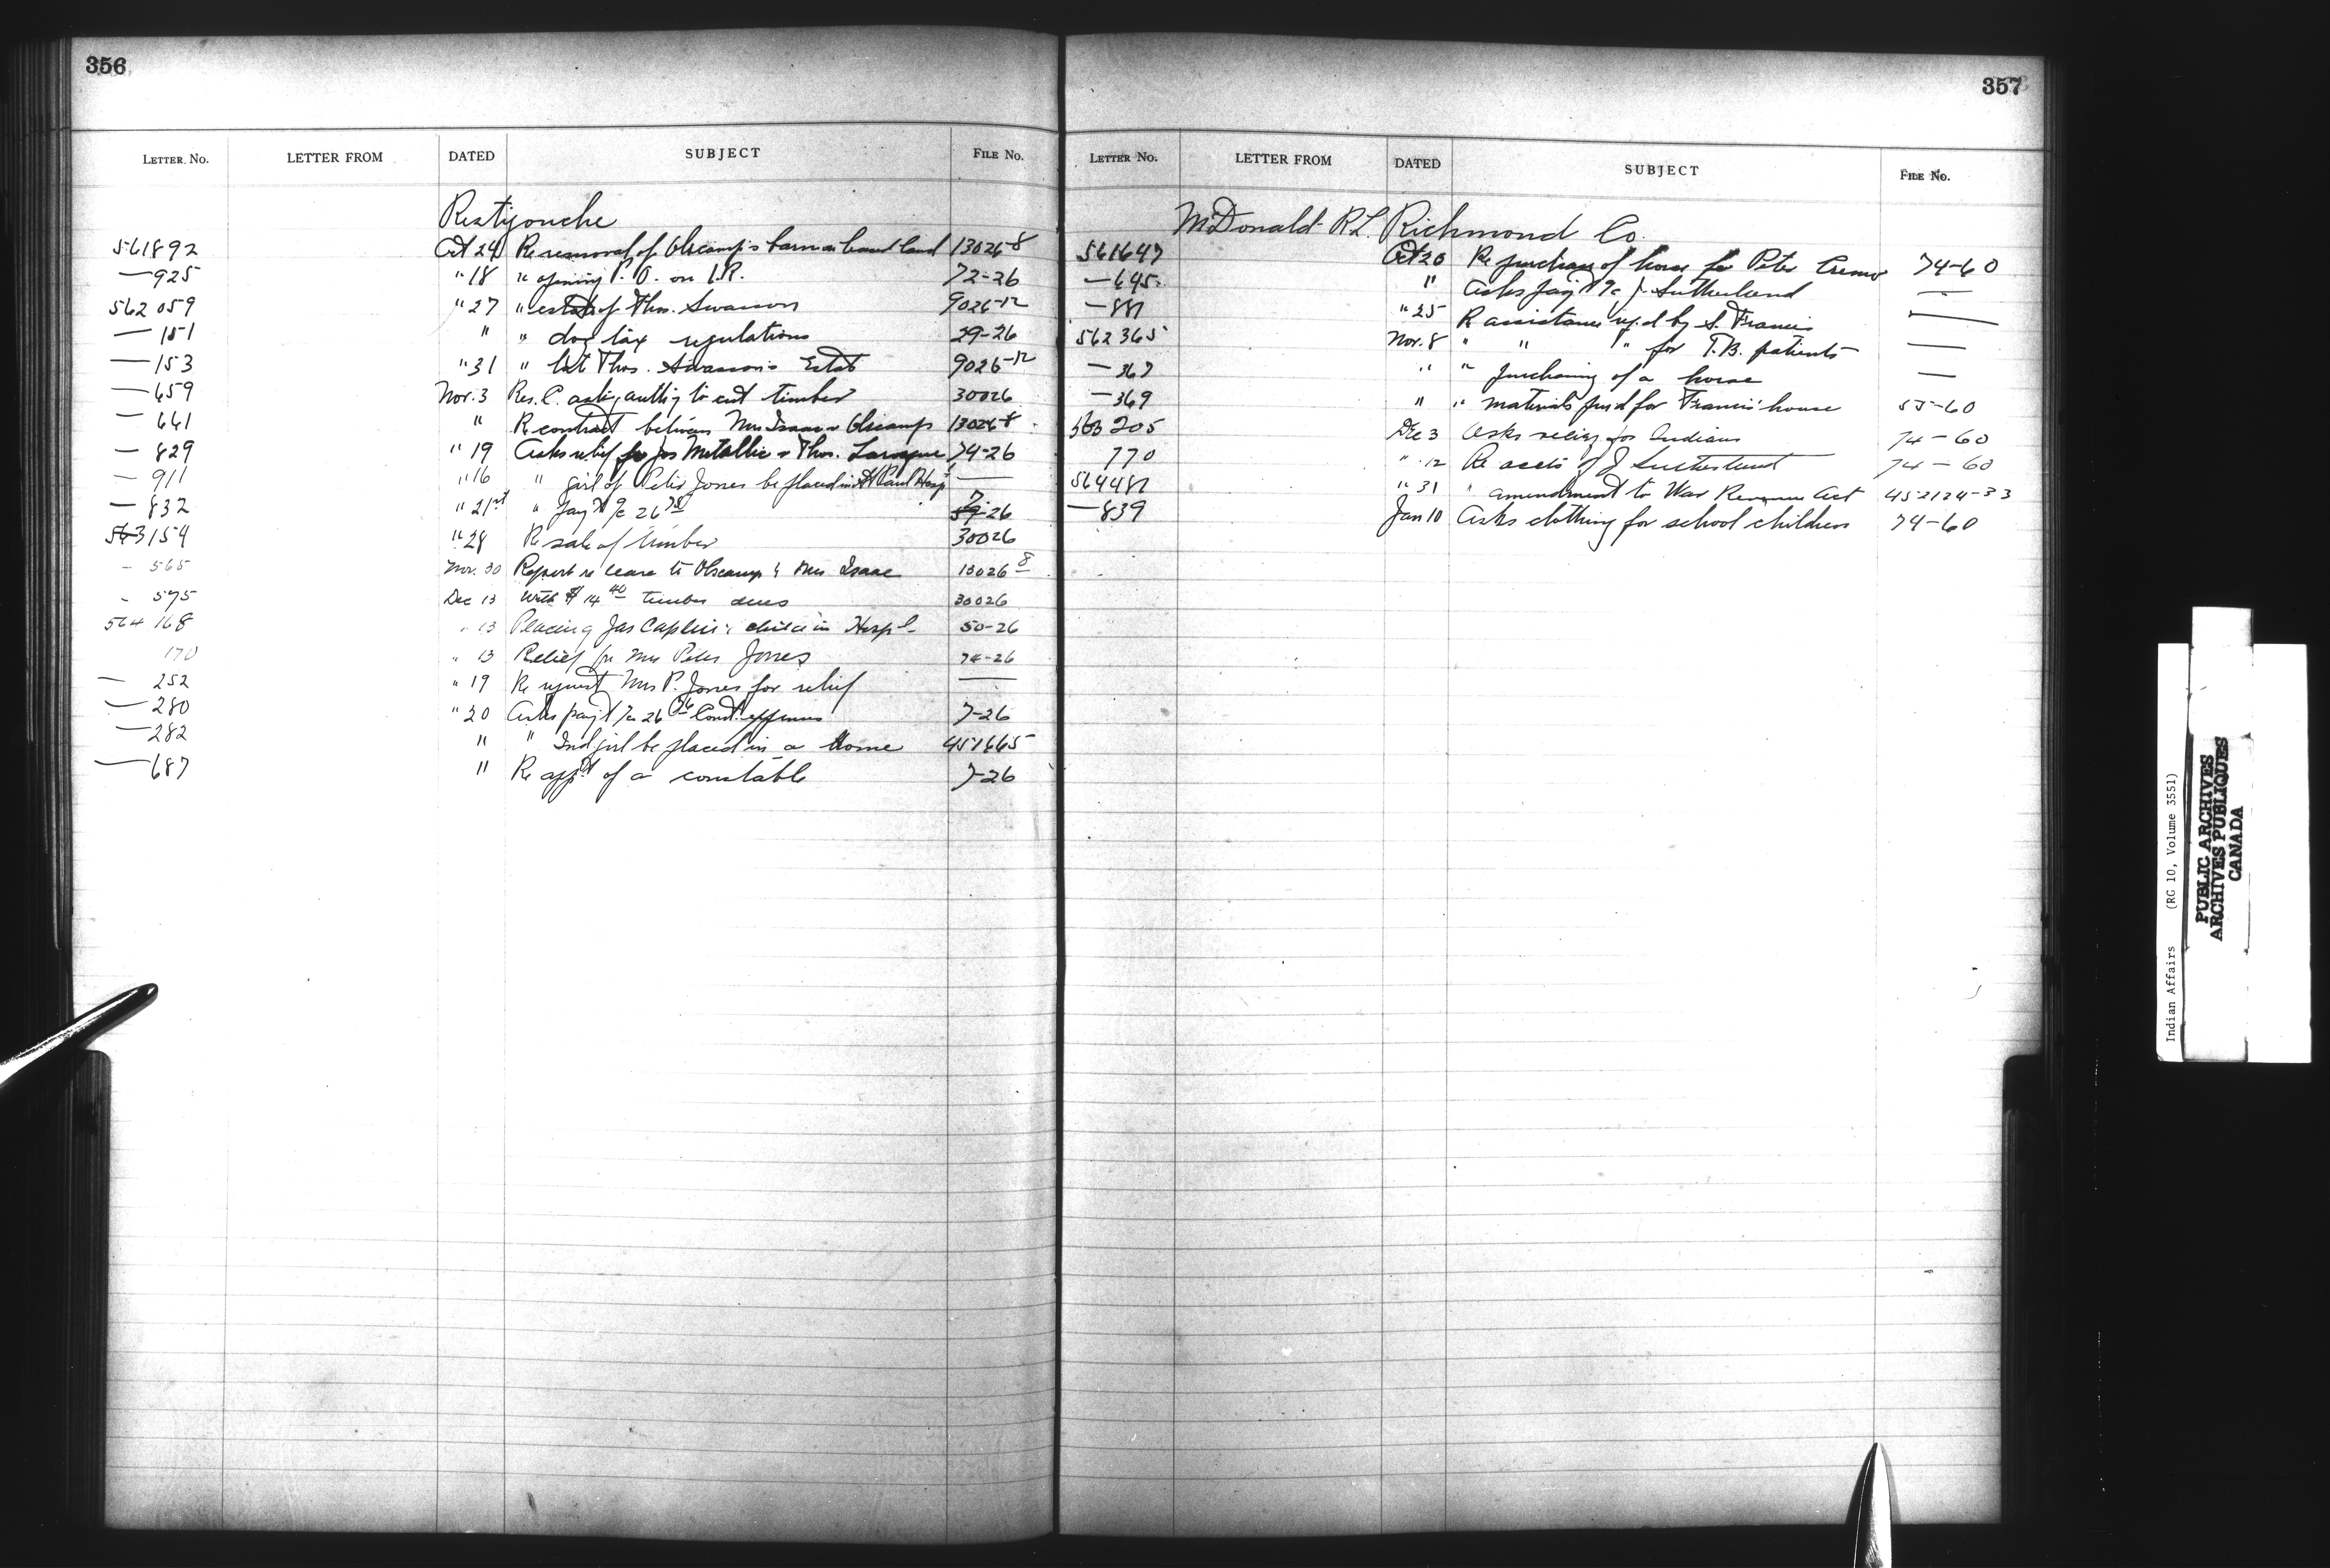 356
LETTER No. LETTER FROM DATED SUBJECT FILE No.
Restigouche
561892 Oct 24 Re removal of Olscamp's barn on band land 13026-8
— 925 " 18 " opening P.O. on I.R. 72-26
562059 " 27 " estate of Thos. Swanson 9026-12
— 151 " " dog tax regulations 29-26
— 153 " 31 " late Thos. Swanson's Estate 9026-12
— 659 Nov. 3 Res. C. askg authy to cut timber 30026
— 661 " Re contract between Mrs Isaac & Olscamp 13026-8
— 829 " 19 Asks relief for Jos Metallic & Thos. 74-26
— 911 " 16 " girl of Peter Jones be placed in St Paul Hosp —
— 832 " 21st " pay't a/c 26.75 7-26
563154 " 28 Re sale of timber 30026
— 565 Nov. 30 Report re lease to Olscamp & Mrs Isaac 13026-8
— 595 Dec 13 With $14.40 timber dues 30026
564168 " 13 Placing Jas Caplin's child in Hosp'l 50-26
170 " 13 Relief for Mrs Peter Jones 74-26
— 252 " 19 Re request Mrs P. Jones for relief —
— 280 " 20 Asks pay't a/c 26 Const. expenses 7-26
— 282 " " Ind girl be placed in a Home 451665
— 687 " Re app't of a constable 7-26
357
LETTER No. LETTER FROM DATED SUBJECT FILE No.
McDonald R.L. Richmond Co.
561647 Oct 20 Re purchase of horse for Peter Cremo 74-60
— 645 " Asks pay't a/c J. Sutherland —
— 881 " 25 Re assistance req'd by S. Francis —
562365 Nov. 8 " " " for T.B. patients —
— 367 " " purchasing of a horse —
— 369 " " materials pur'd for Francis' house 55-60
563205 Dec 3 Asks relief for Indians 74-60
770 " 12 Re accts of J Sutherland 74-60
564481 " 31 " amendment to War Revenue Act 452124-33
— 839 Jan 10 Asks clothing for school children 74-60
Indian Affairs (RG 10, Volume 3551)
PUBLIC ARCHIVES
ARCHIVES PUBLIQUES
CANADA